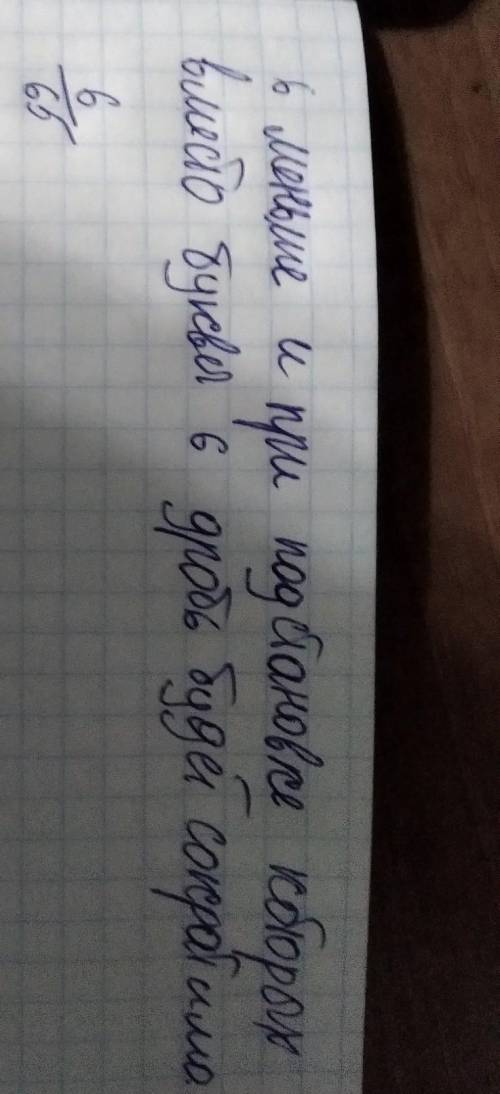 в меньше и при подстановке которых
вместо буквы в дробь будет сократима.
в
65